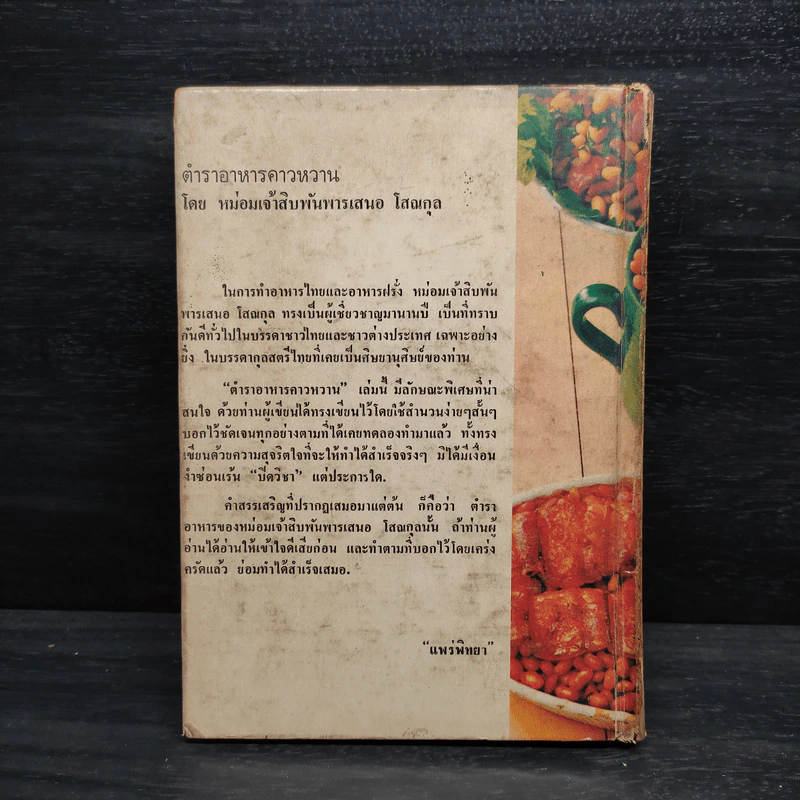 ตำราอาหารคาวหวาน
โดย หม่อมเจ้าสิบพันพารเสนอ โสณกุล
ในการทำอาหารไทยและอาหารฝรั่ง หม่อมเจ้าสิบพัน
พารเสนอ โสณกุล ทรงเป็นผู้เชี่ยวชาญมานานปี เป็นที่ทราบ
กันดีทั่วไปในบรรดาชาวไทยและชาวต่างประเทศ เฉพาะอย่าง
ยิ่ง ในบรรดากุลสตรีไทยที่เคยเป็นศิษยานุศิษย์ของท่าน
“ตำราอาหารคาวหวาน” เล่มนี้ มีลักษณะพิเศษที่น่า
สนใจ ด้วยท่านผู้เขียนได้ทรงเขียนไว้โดยใช้สำนวนง่ายๆสั้นๆ
บอกไว้ชัดเจนทุกอย่างตามที่ได้เคยทดลองทำมาแล้ว ทั้งทรง
เขียนด้วยความสุจริตใจที่จะให้ทำได้สำเร็จจริงๆ มิได้มีเงื่อน
งำซ่อนเร้น “ปิดวิชา” แต่ประการใด.
คำสรรเสริญที่ปรากฏเสมอมาแต่ต้น ก็คือว่า ตำรา
อาหารของหม่อมเจ้าสิบพันพารเสนอ โสณกุลนั้น ถ้าท่านผู้
อ่านได้อ่านให้เข้าใจดีเสียก่อน และทำตามที่บอกไว้โดยเคร่ง
ครัดแล้ว ย่อมทำได้สำเร็จเสมอ.
“แพร่พิทยา”